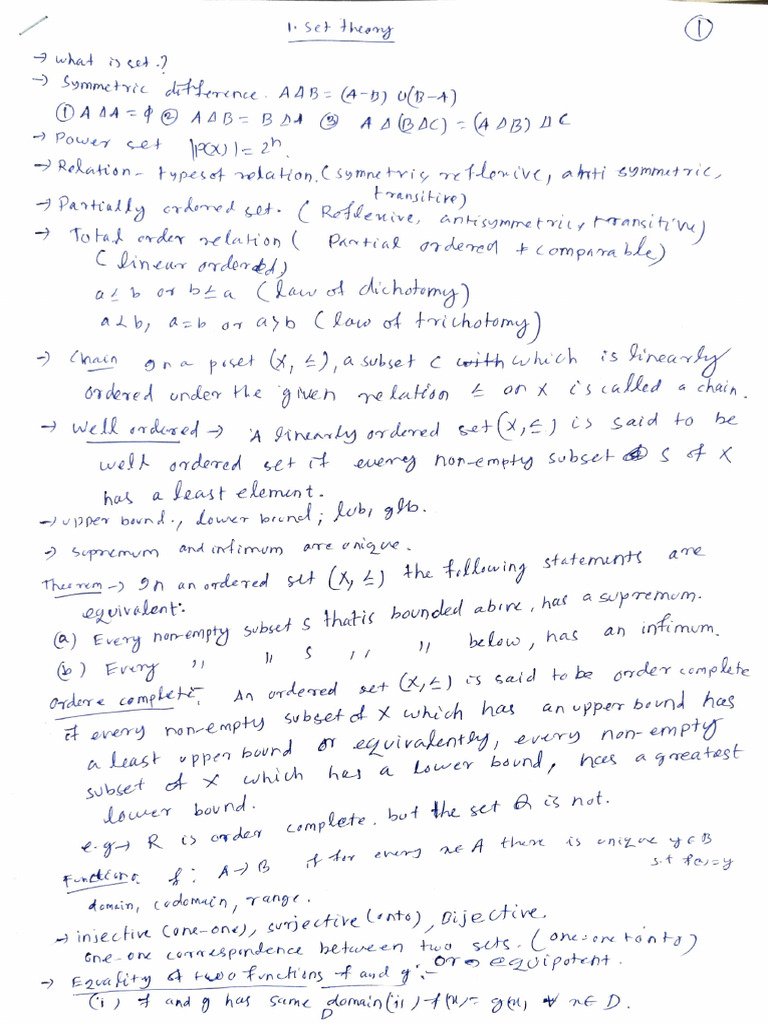 1. Set theory
①
→ What is set.?
→ Symmetric difference. A∆B = (A-B) U(B-A)
① A∆A = ϕ ② A∆B = B∆A ③ A∆(B∆C) = (A∆B)∆C
→ Power set |P(X)| = 2ⁿ.
→ Relation - types of relation. (symmetric, reflexive, anti symmetric,
transitive)
→ Partially ordered set. (Reflexive, antisymmetric, transitive)
→ Total order relation ( Partial ordered + comparable)
( linear ordered)
a≤b or b≤a (law of dichotomy)
a<b, a=b or a>b (law of trichotomy)
→ Chain In a poset (X, ≤), a subset C which is linearly
ordered under the given relation ≤ on X is called a chain.
→ Well ordered → A linearly ordered set (X, ≤) is said to be
well ordered set if every non-empty subset S of X
has a least element.
→ upper bound., lower bound; lub, glb.
→ supremum and infimum are unique.
Theorem → In an ordered set (X, ≤) the following statements are
equivalent:
(a) Every non-empty subset S that is bounded above, has a supremum.
(b) Every ,, ,, S ,, ,, below, has an infimum.
Ordere complete. An ordered set (X, ≤) is said to be order complete
if every non-empty subset of X which has an upper bound has
a least upper bound or equivalently, every non-empty
subset of X which has a lower bound, has a greatest
lower bound.
e.g → R is order complete. but the set Q is not.
Function. f: A→B if for every x∈A there is unique y∈B
s.t f(x)=y
domain, codomain, range.
→ injective (one-one), surjective (onto), Bijective.
one-one correspondence between two sets. (one-one + onto)
→ Equality of two functions f and g:- Or → equipotent.
(i) f and g has same domain (ii) f(x) = g(x) ∀ x∈D.
D